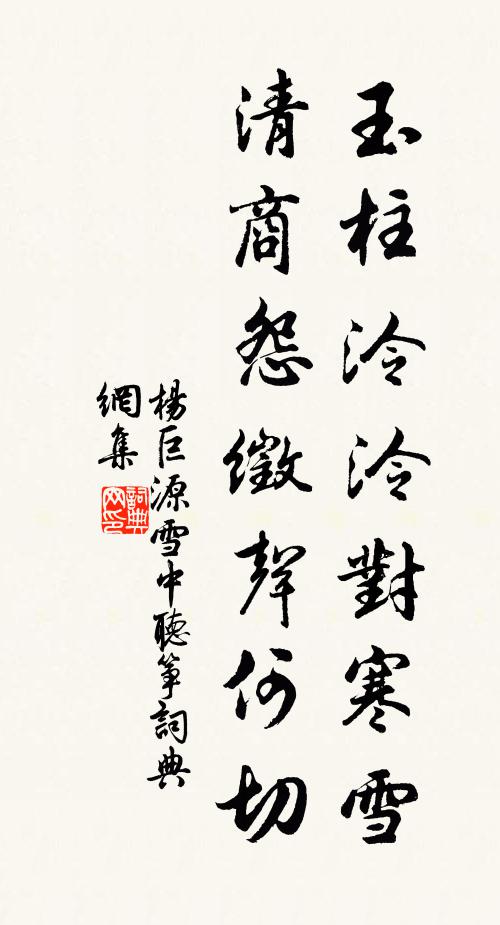 玉柱泠泠對寒雪
清商怨徵聲何切
楊巨源雪中聽箏詞典
網集
詞典
网印